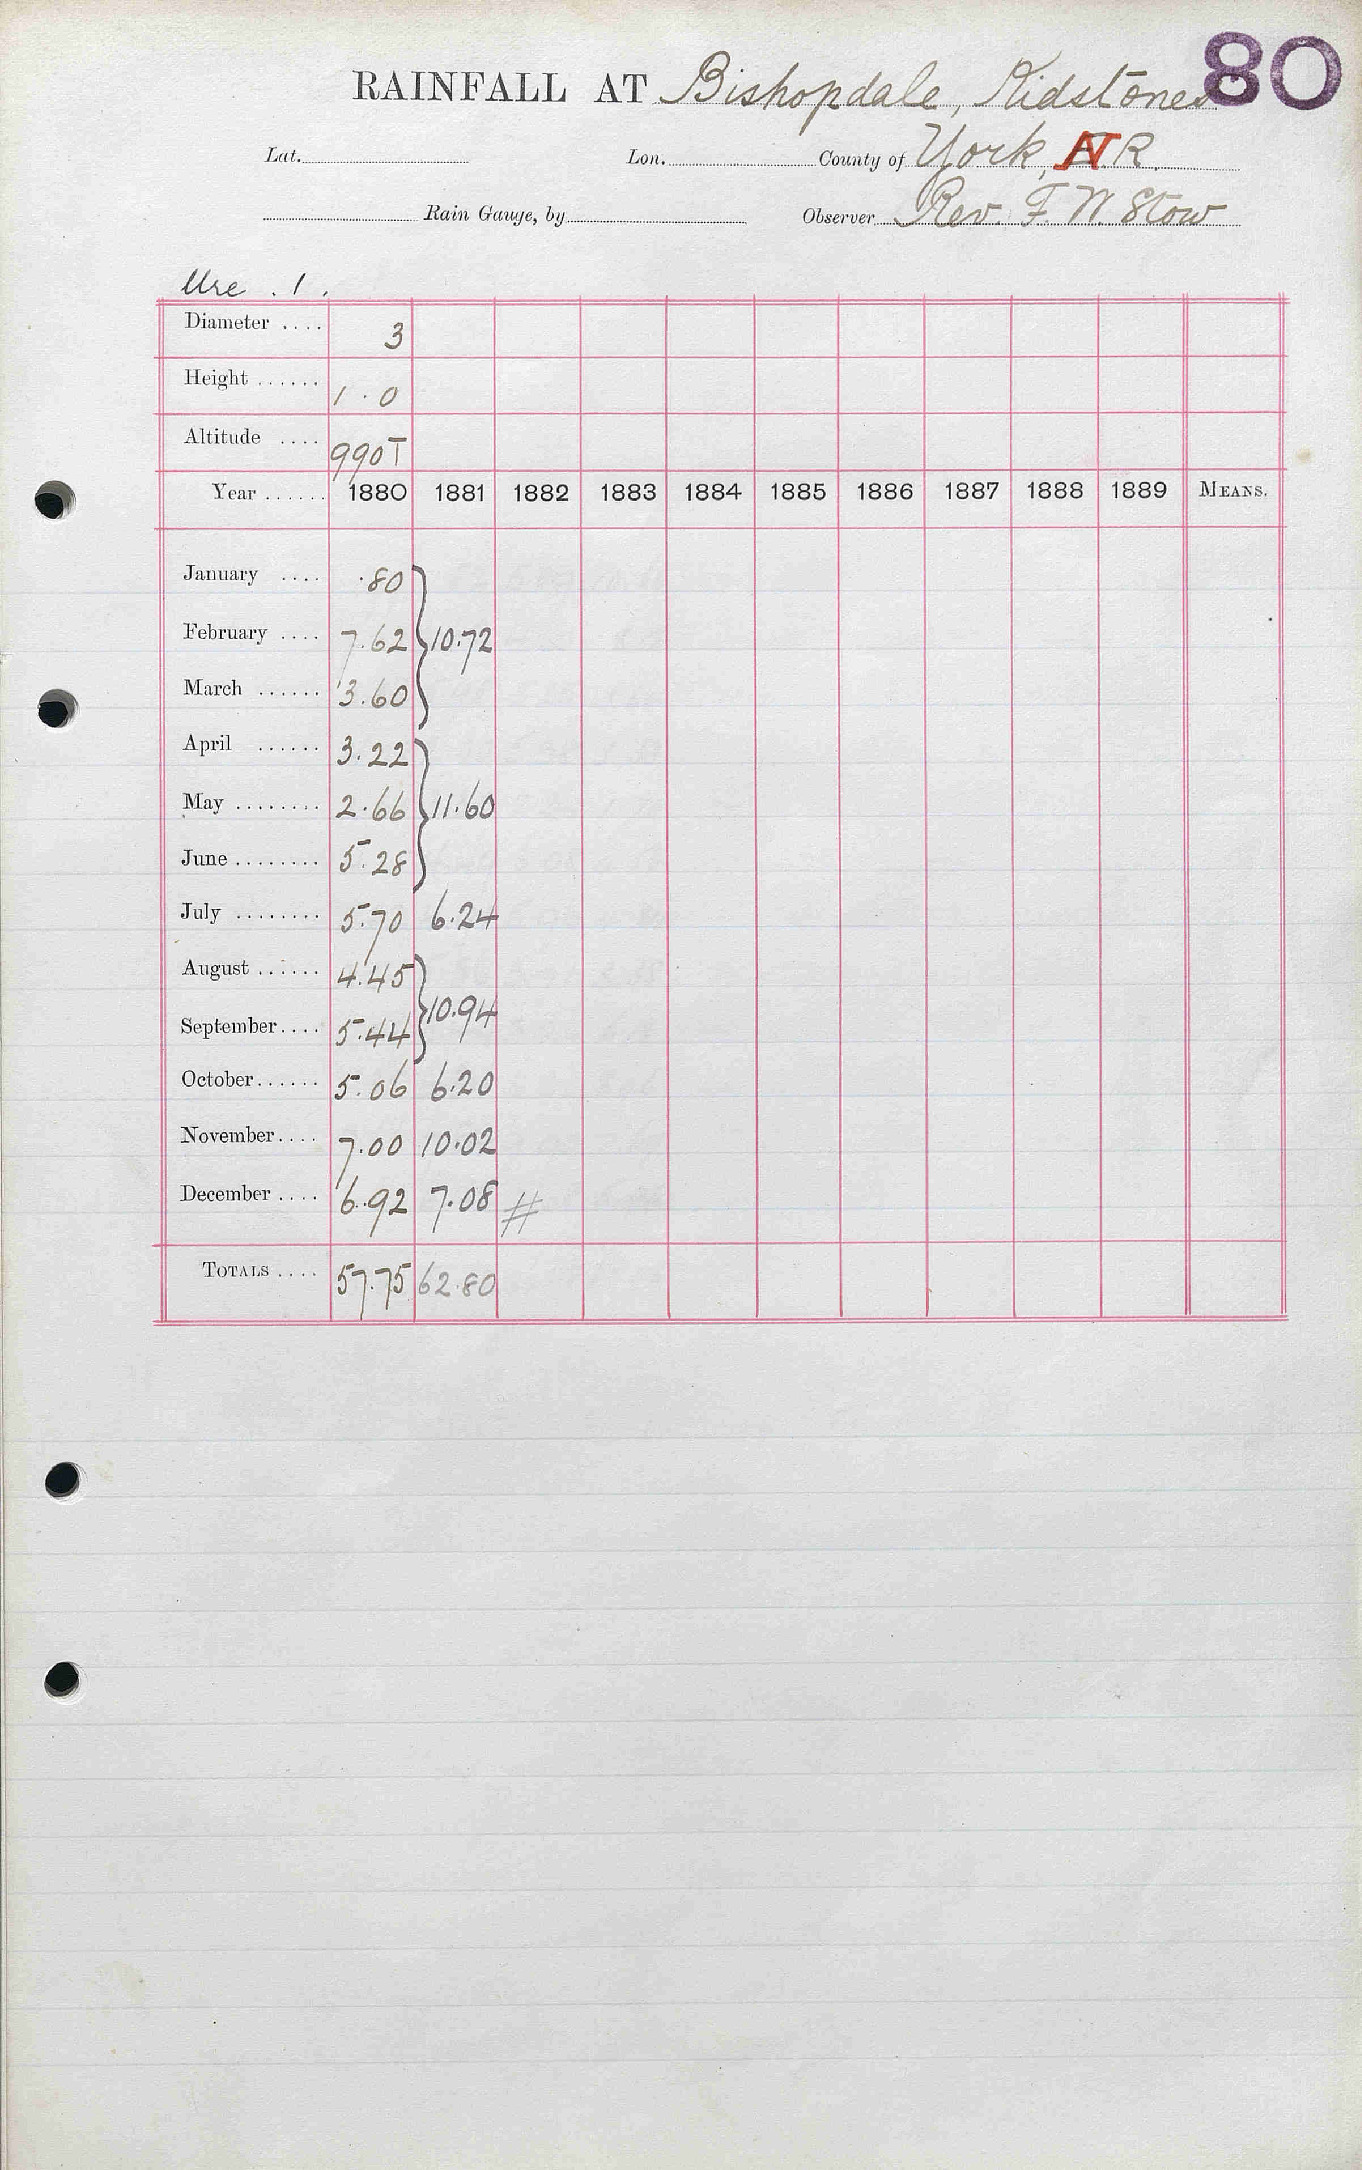 80
RAINFALL AT Bishopdale, Kidstones
Lat. Lon. County of York, N.R.
Rain Gauge, by Observer Rev. F. W. Stow
Ure . 1 .
Diameter .... 3
Height ...... 1 . 0
Altitude .... 990T
Year ...... 1880 1881 1882 1883 1884 1885 1886 1887 1888 1889 MEANS.
January .... .80
February .... 7.62 } 10.72
March ...... 3.60
April ...... 3.22
May ........ 2.66 } 11.60
June ........ 5.28
July ........ 5.70 6.24
August ...... 4.45
} 10.94
September .... 5.44
October ...... 5.06 6.20
November .... 7.00 10.02
December .... 6.92 7.08 #
TOTALS .... 57.75 62.80